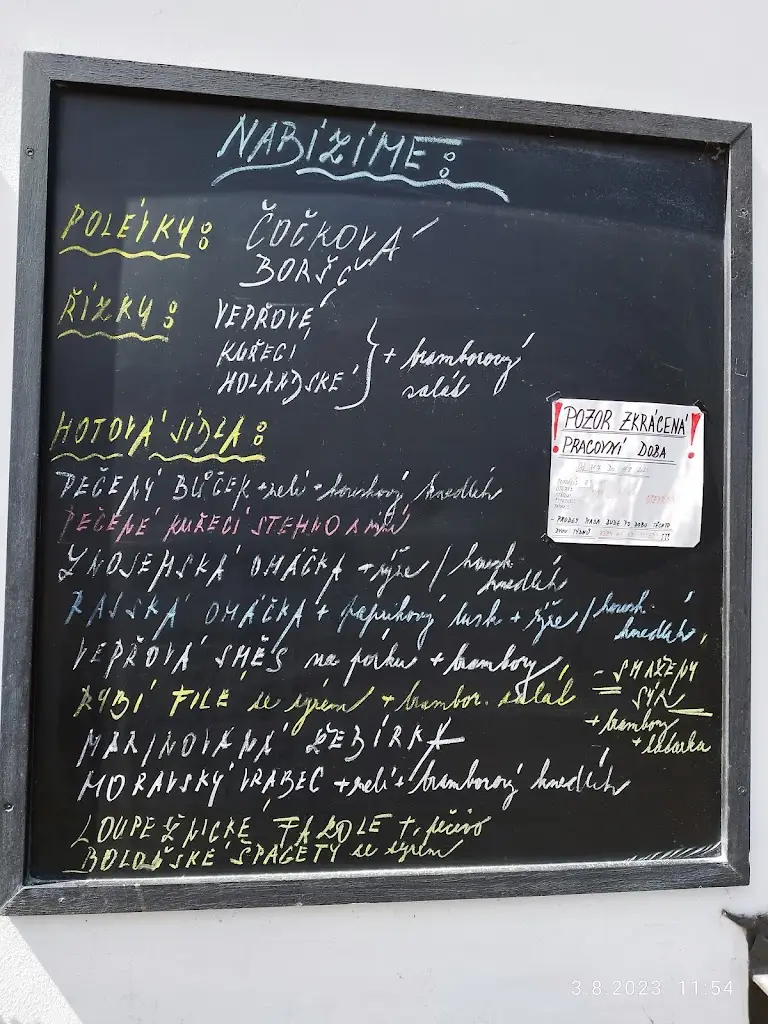 NABÍZÍME:
POLÉVKY: ČOČKOVÁ
BORŠČ
ŘÍZKY: VEPŘOVÉ
KUŘECÍ
HOLANDSKÉ
+ bramborový
salát
HOTOVÁ JÍDLA:
PEČENÝ BŮČEK + zelí + houskový knedlík
PEČENÉ KUŘECÍ STEHNO
ZNOJEMSKÁ OMÁČKA + rýže / housk.
knedlík
RAJSKÁ OMÁČKA + paprikový lusk + rýže / housk.
knedlík
VEPŘOVÁ SMĚS na pórku + brambory
RYBÍ FILÉ se sýrem + brambor. salát
MARINOVANÁ ŽEBÍRKA
MORAVSKÝ VRABEC + zelí + bramborový knedlík
LOUPEŽNICKÉ FAZOLE + pečivo
BOLOŇSKÉ ŠPAGETY se sýrem
- SMAŽENÝ
SÝR
+ brambory
+ tatarka
! POZOR ZKRÁCENÁ !
PRACOVNÍ DOBA
- PRODEJ MASA BUDE PO DOBU TĚCHTO
3.8.2023 11:54